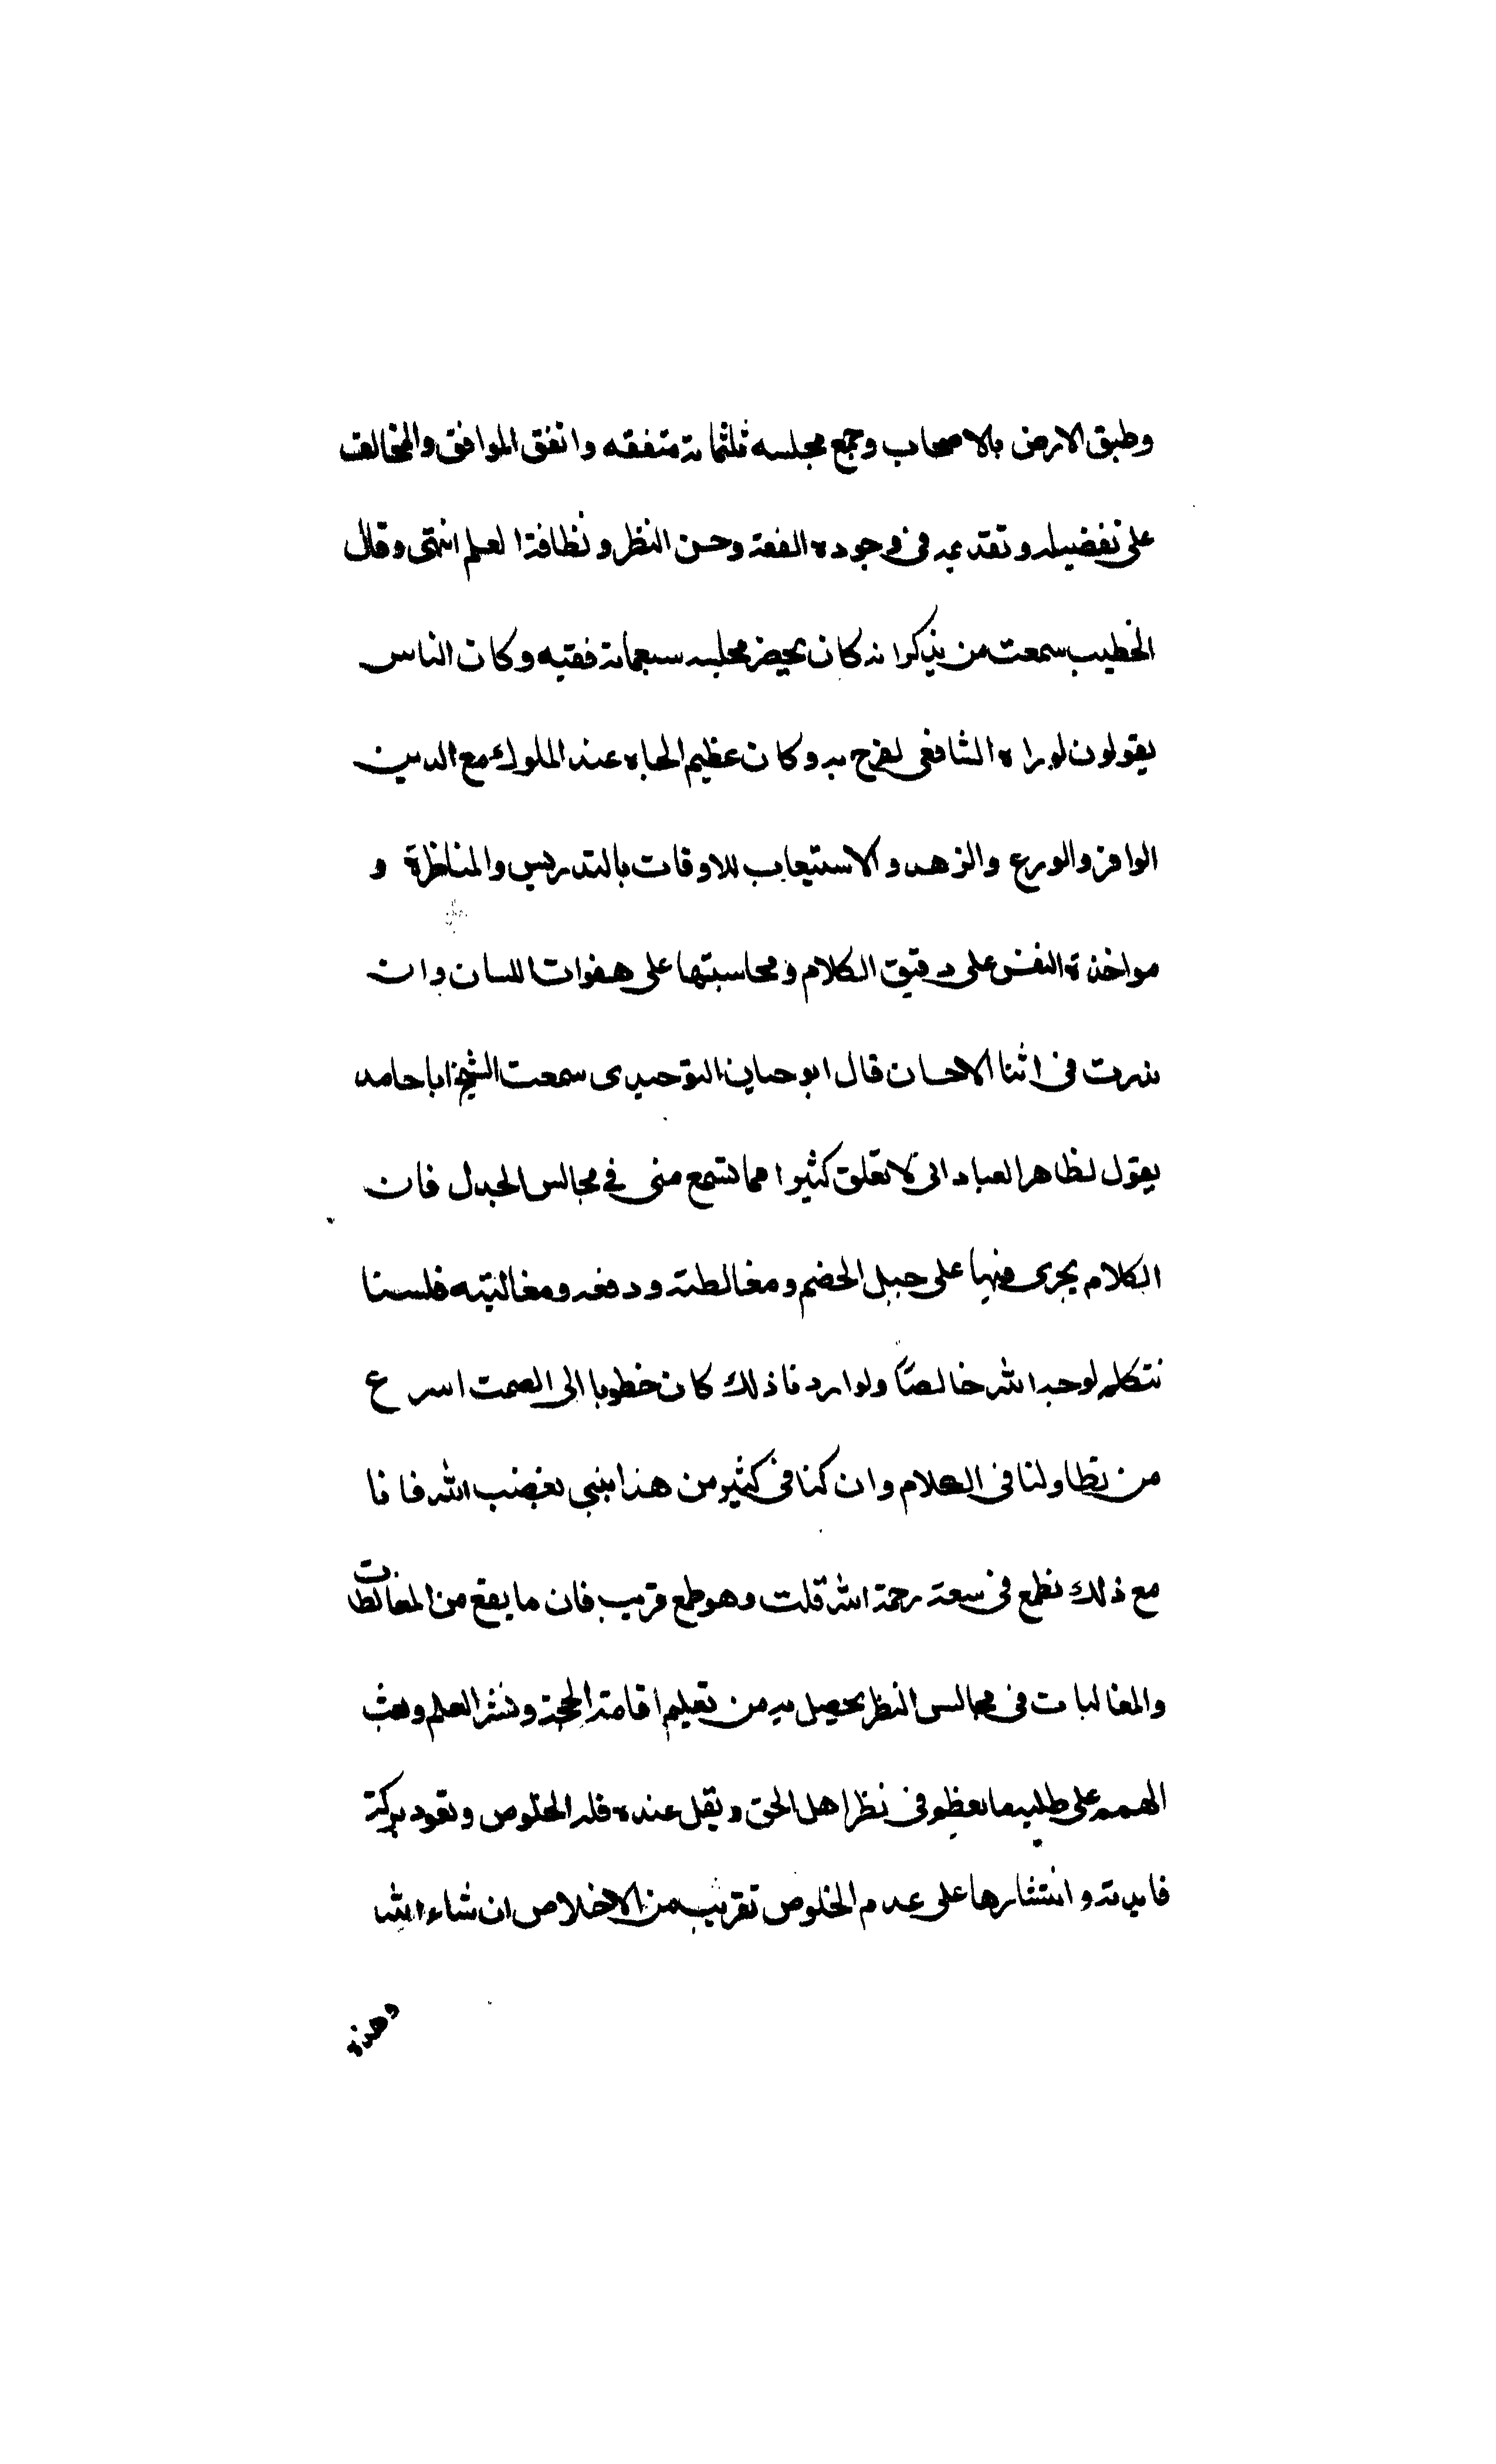 وطبق الارض بالاصحاب وجمع مجلسه ثلثماية متفقه واتفق الموافق والمخالف
على تفضيله وتقديمه في وجوده الفقه وحسن النظر ونظافة العلم انتهى وقال
الخطيب سمعت من يذكر انه كان يحضر مجلسه سبعماية فقيه وكان الناس
يقولون لو راه الشافعى لفرح به وكان عظيم الجاه عند الملوك مع الدين
الوافر والورع والزهد والاستيعاب للاوقات بالتدريس والمناظرة و
مواخذة النفس على دقيق الكلام ومحاسبتها على هفوات اللسان وان
بدرت في اثنا الاحسان قال ابو حيان التوحيدى سمعت الشيخ ابا حامد
يقول لطاهر العبادانى لا تعلق كثيرا مما تسمع منى في مجالس الجدل فان
الكلام يجرى فيها على حبل الخصم ومغالطته ودفعه ومغالبته فلسنا
نتكلم لوجه الله خالصًا ولو اردنا ذلك كان خطونا الى الصمت اسرع
من تطاولنا في الكلام وان كنا في كثير من هذا نبنى بغضب الله فانا
مع ذلك نطمع في سعة رحمة الله قلت وهو طمع قريب فان ما يقع من المغالطات
والمغالبات في مجالس النظر يحصل به من تعليم اقامة الحجة ونشر العلم وبعث
الهمم على طلبه ما يعظم في نظر اهل الحق ويقل عنده قلة الخلوص وتعود بركة
فايدته وانتشارها على عدم الخلوص تقريب من الاخلاص ان شاء الله
وهذه